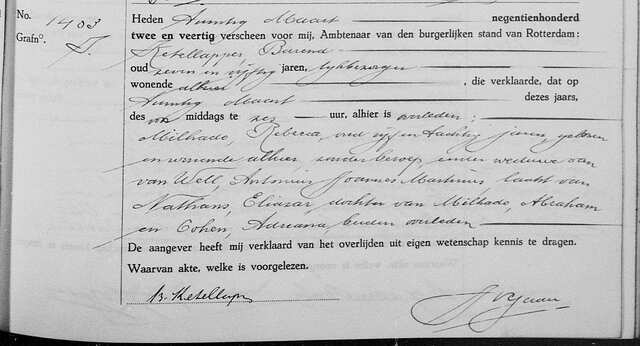 No. 1403
Grafno. T.
Heden twintig Maart negentienhonderd
twee en veertig verscheen voor mij, Ambtenaar van den burgerlijken stand van Rotterdam:
Ketellapper, Barend
oud zeven en vijftig jaren, lijkbezorger
wonende alhier, die verklaarde, dat op
twintig Maart dezes jaars,
des middags te zes uur, alhier is overleden:
Milhado, Rebecca, oud vijf en tachtig jaren, geboren
en wonende alhier zonder beroep eerder weduwe van
van Well, Antonius Joannes Martinus, laatst van
Nathans, Eliazar, dochter van Milhado, Abraham
en Cohen, Adriana, beiden overleden
De aangever heeft mij verklaard van het overlijden uit eigen wetenschap kennis te dragen.
Waarvan akte, welke is voorgelezen.
B. Ketellapper